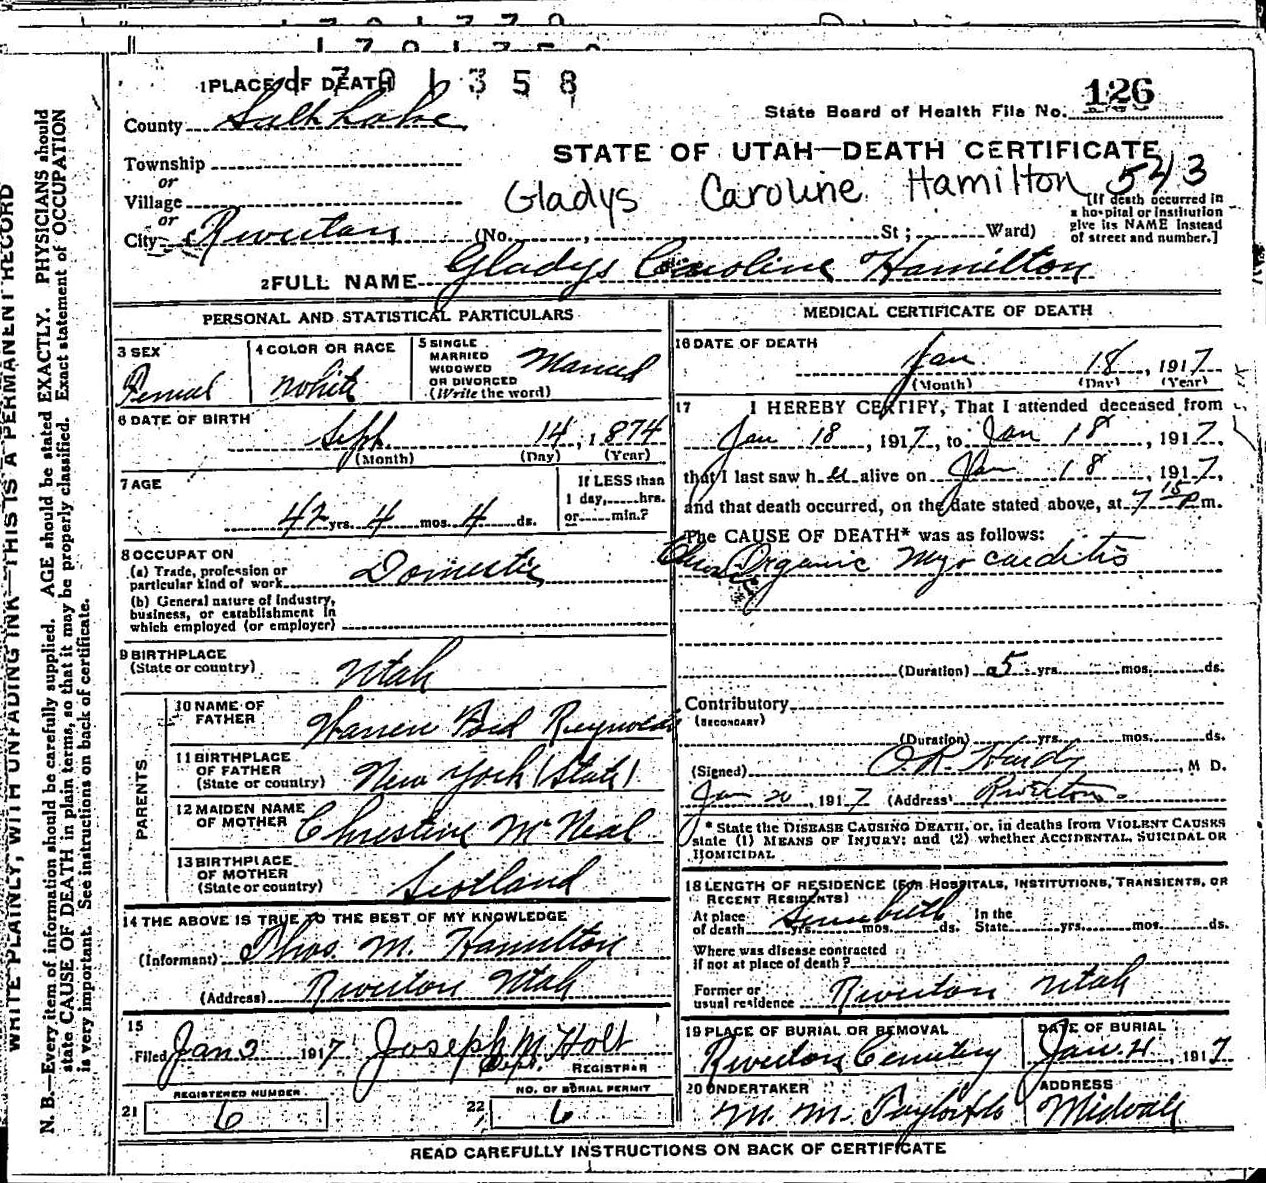 1701358
1 PLACE OF DEATH
126
State Board of Health File No.
County Salt Lake
STATE OF UTAH—DEATH CERTIFICATE
Township
or
Village
or
Gladys Caroline Hamilton 543
[If death occurred in a hospital or institution give its NAME instead of street and number.]
City Riverton (No. , St ; Ward)
2 FULL NAME Gladys Caroline Hamilton
PERSONAL AND STATISTICAL PARTICULARS
3 SEX Femal
4 COLOR OR RACE White
5 SINGLE MARRIED WIDOWED OR DIVORCED (Write the word) Married
6 DATE OF BIRTH
Sept 14, 1874
(Month) (Day) (Year)
7 AGE
42 yrs. 4 mos. 4 ds.
If LESS than
1 day, hrs.
or min.?
8 OCCUPATION
(a) Trade, profession or
particular kind of work Domestic
(b) General nature of Industry,
business, or establishment in
which employed (or employer)
9 BIRTHPLACE
(State or country) Utah
PARENTS
10 NAME OF
FATHER Warren Ford Reynolds
11 BIRTHPLACE
OF FATHER
(State or country) New York (State)
12 MAIDEN NAME
OF MOTHER Christine McNeal
13 BIRTHPLACE
OF MOTHER
(State or country) Scotland
14 THE ABOVE IS TRUE TO THE BEST OF MY KNOWLEDGE
(Informant) Thos. M. Hamilton
(Address) Riverton Utah
15
Filed Jan 2 1917 Joseph M. Holt
Dept. REGISTRAR
REGISTERED NUMBER
21 6
NO. OF BURIAL PERMIT
22 6
MEDICAL CERTIFICATE OF DEATH
16 DATE OF DEATH
Jan 18, 1917
(Month) (Day) (Year)
17 I HEREBY CERTIFY, That I attended deceased from
Jan 18, 1917, to Jan 18, 1917,
that I last saw her alive on Jan 18, 1917,
and that death occurred, on the date stated above, at 7 15 P.m.
The CAUSE OF DEATH* was as follows:
Organic Myocarditis
(Duration) 5 yrs. mos. ds.
Contributory
(SECONDARY)
(Duration) yrs. mos. ds.
(Signed) O.R. Hardy, M D.
Jan 20, 1917 (Address) Riverton
* State the DISEASE CAUSING DEATH, or, in deaths from VIOLENT CAUSES
state (1) MEANS OF INJURY; and (2) whether ACCIDENTAL, SUICIDAL OR
HOMICIDAL
18 LENGTH OF RESIDENCE (FOR HOSPITALS, INSTITUTIONS, TRANSIENTS, OR
RECENT RESIDENTS)
At place
of death Since birth yrs. mos. ds. In the
State yrs. mos. ds.
Where was disease contracted
if not at place of death?
Former or
usual residence Riverton Utah
19 PLACE OF BURIAL OR REMOVAL
Riverton Cemetery
DATE OF BURIAL
Jan. 21, 1917
20 UNDERTAKER
M. M.
ADDRESS
Midvale
READ CAREFULLY INSTRUCTIONS ON BACK OF CERTIFICATE
WRITE PLAINLY, WITH UNFADING INK—THIS IS A PERMANENT RECORD
N. B.—Every item of information should be carefully supplied. AGE should be stated EXACTLY. PHYSICIANS should
state CAUSE OF DEATH in plain terms, so that it may be properly classified. Exact statement of OCCUPATION
is very important. See instructions on back of certificate.